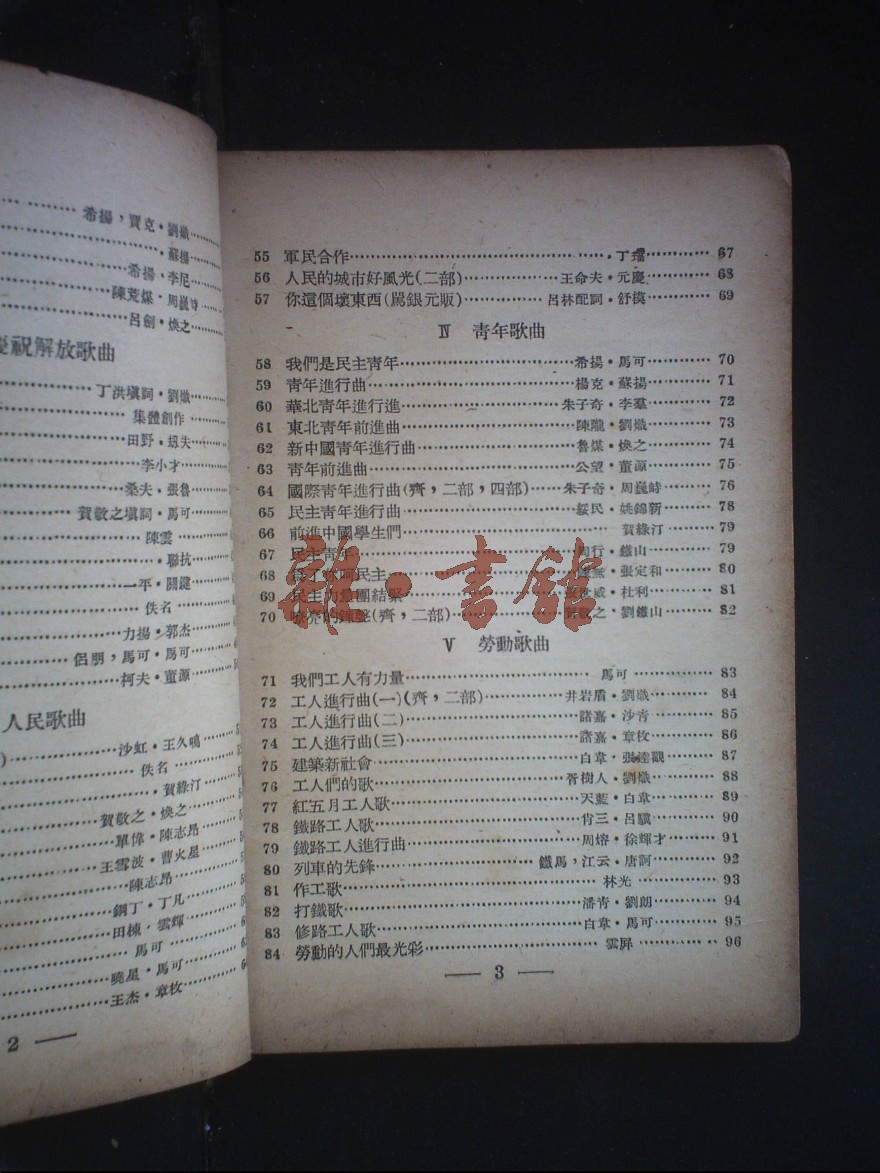 希揚，賈克・劉熾
蘇揚
希揚・李尼
陳荒煤・周巍峙
呂劍・煥之
祝解放歌曲
丁洪塡詞・劉熾
集體創作
田野・刼夫
李小才
桑夫・張魯
賀敬之塡詞・馬可
陳雲
聯抗
一平・關鍵
佚名
力揚・郭杰
侶朋，馬可・馬可
柯夫・董源
人民歌曲
沙虹・王久鳴
佚名
賀綠汀
賀敬之・煥之
單偉・陳志昂
王雪波・曹火星
陳志昂
鋼丁・丁凡
田棟・雲輝
馬可
曉星・馬可
王杰・章枚
2 —
55 軍民合作 丁璫 67
56 人民的城市好風光(二部) 王命夫・元慶 68
57 你這個壞東西(罵銀元販) 呂林配詞・舒模 69
Ⅳ 靑年歌曲
58 我們是民主靑年 希揚・馬可 70
59 靑年進行曲 楊克・蘇揚 71
60 華北靑年進行進 朱子奇・李羣 72
61 東北靑年前進曲 陳隴・劉熾 73
62 新中國靑年進行曲 魯煤・煥之 74
63 靑年前進曲 公望・董源 75
64 國際靑年進行曲(齊，二部，四部) 朱子奇・周巍峙 76
65 民主靑年進行曲 綏民・姚錦新 78
66 前進中國學生們 賀綠汀 79
67 民主靑年 周行・鐵山 79
68 民主 ・張定和 80
69 民主力量團結緊 威・杜利 81
70 的鐘聲(齊，二部) 敬之・劉鐵山 82
Ⅴ 勞動歌曲
71 我們工人有力量 馬可 83
72 工人進行曲(一)(齊，二部) 井岩盾・劉熾 84
73 工人進行曲(二) 諸嘉・沙青 85
74 工人進行曲(三) 諸嘉・章枚 86
75 建築新社會 白韋・張達觀 87
76 工人們的歌 胥樹人・劉熾 88
77 紅五月工人歌 天藍・白韋 89
78 鐵路工人歌 肖三・呂驥 90
79 鐵路工人進行曲 周熔・徐輝才 91
80 列車的先鋒 鐵馬，江云・唐訶 92
81 作工歌 林光 93
82 打鐵歌 潘青・劉朗 94
83 修路工人歌 白韋・馬可 95
84 勞動的人們最光彩 雲屏 96
— 3 —
雜・書館